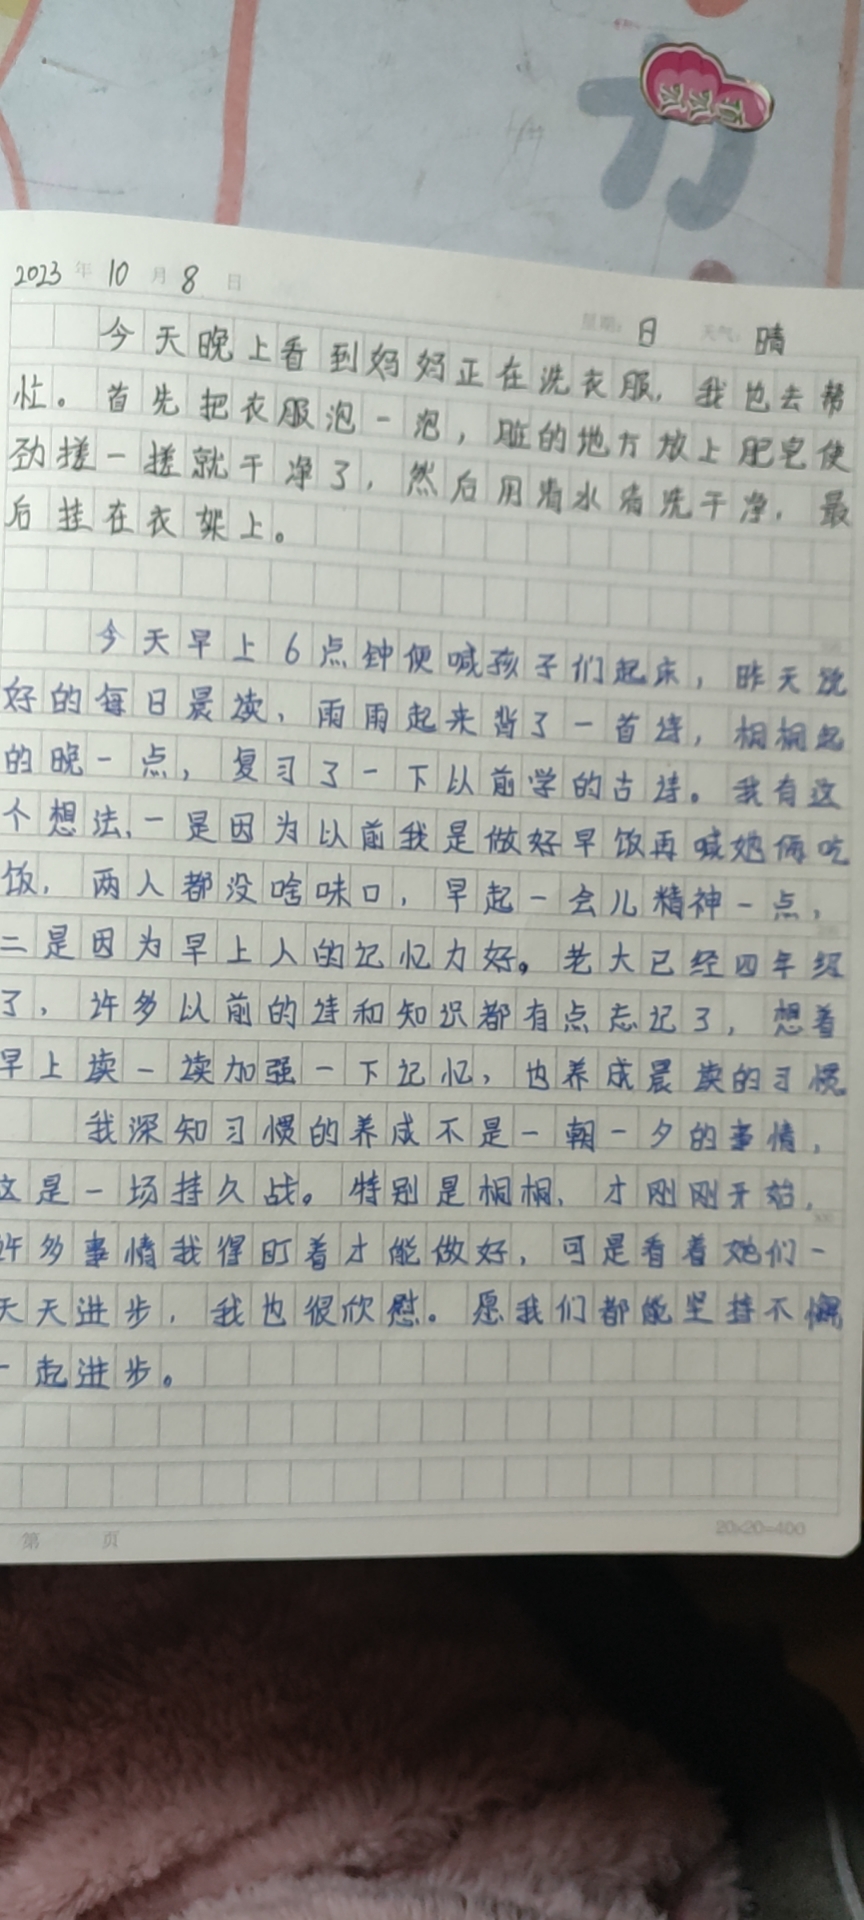 方
2023年10月8日
星期：日 天气：晴
今天晚上看到妈妈正在洗衣服，我也去帮
忙。首先把衣服泡一泡，脏的地方放上肥皂使
劲搓一搓就干净了，然后用清水清洗干净，最
后挂在衣架上。
今天早上6点钟便喊孩子们起床，昨天说
好的每日晨读，雨雨起来背了一首诗，桐桐起
的晚一点，复习了一下以前学的古诗。我有这
个想法，一是因为以前我是做好早饭再喊她俩吃
饭，两人都没啥味口，早起一会儿精神一点，
二是因为早上人的记忆力好。老大已经四年级
了，许多以前的诗和知识都有点忘记了，想着
早上读一读加强一下记忆，也养成晨读的习惯
我深知习惯的养成不是一朝一夕的事情，
这是一场持久战。特别是桐桐，才刚刚开始，
许多事情我得盯着才能做好，可是看着她们一
天天进步，我也很欣慰。愿我们都能坚持不懈
一起进步。
第 页
20×20=400